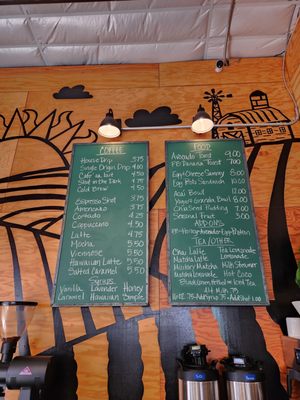 COFFEE
House Drip 3.75
Single Origin Drip 4.
Cafe au lait 4.50
Shot in the Dark 4.75
Cold Brew 4.50
Espresso Shot 3.75
Americano 3.75
Cortado 4.25
Cappuccino 4.50
Latte 4.75
Mocha 5.50
Viennese 5.50
Hawaiian Latte 5.50
Salted Caramel 5.50
SYRUPS
Vanilla Lavender Honey
Caramel Hawaiian Simple
FOOD
Avocado Toast 9.00
PB Banana Toast 7.00
Egg & Cheese Sammy 8.00
Egg Pesto Sandwich 10.00
Acai Bowl 12.00
Yogurt Granola Bowl 8.00
Chia Seed Pudding 7.00
Seasonal Fruit 3.00
ADD-ONS
TEA/OTHER
Chai Latte Tea Lemonade
Matcha Latte Lemonade
Mystery Matcha Milk Steamer
Night Shade Hot Coco
Iced Tea
Alt Milk .75